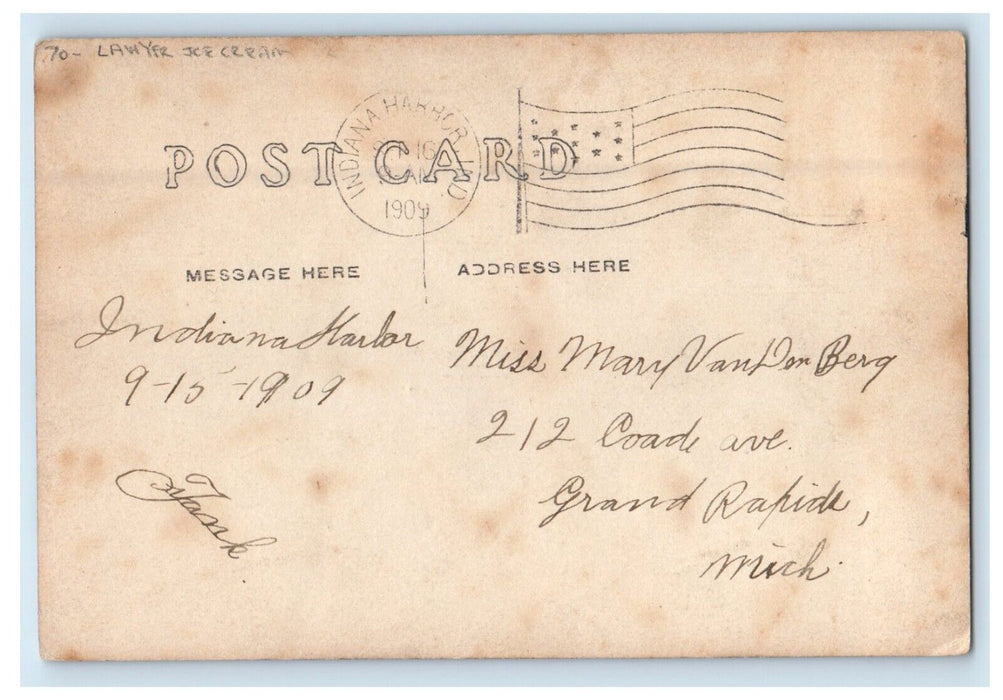 70- LAWYER ICE CREAM
POST CARD
INDIANA HARBOR, IND.
16
1909
MESSAGE HERE
ADDRESS HERE
Indiana Harbor
9-15-1909
Frank
Miss Mary VanDen Berg
212 Coade ave.
Grand Rapids,
Mich.